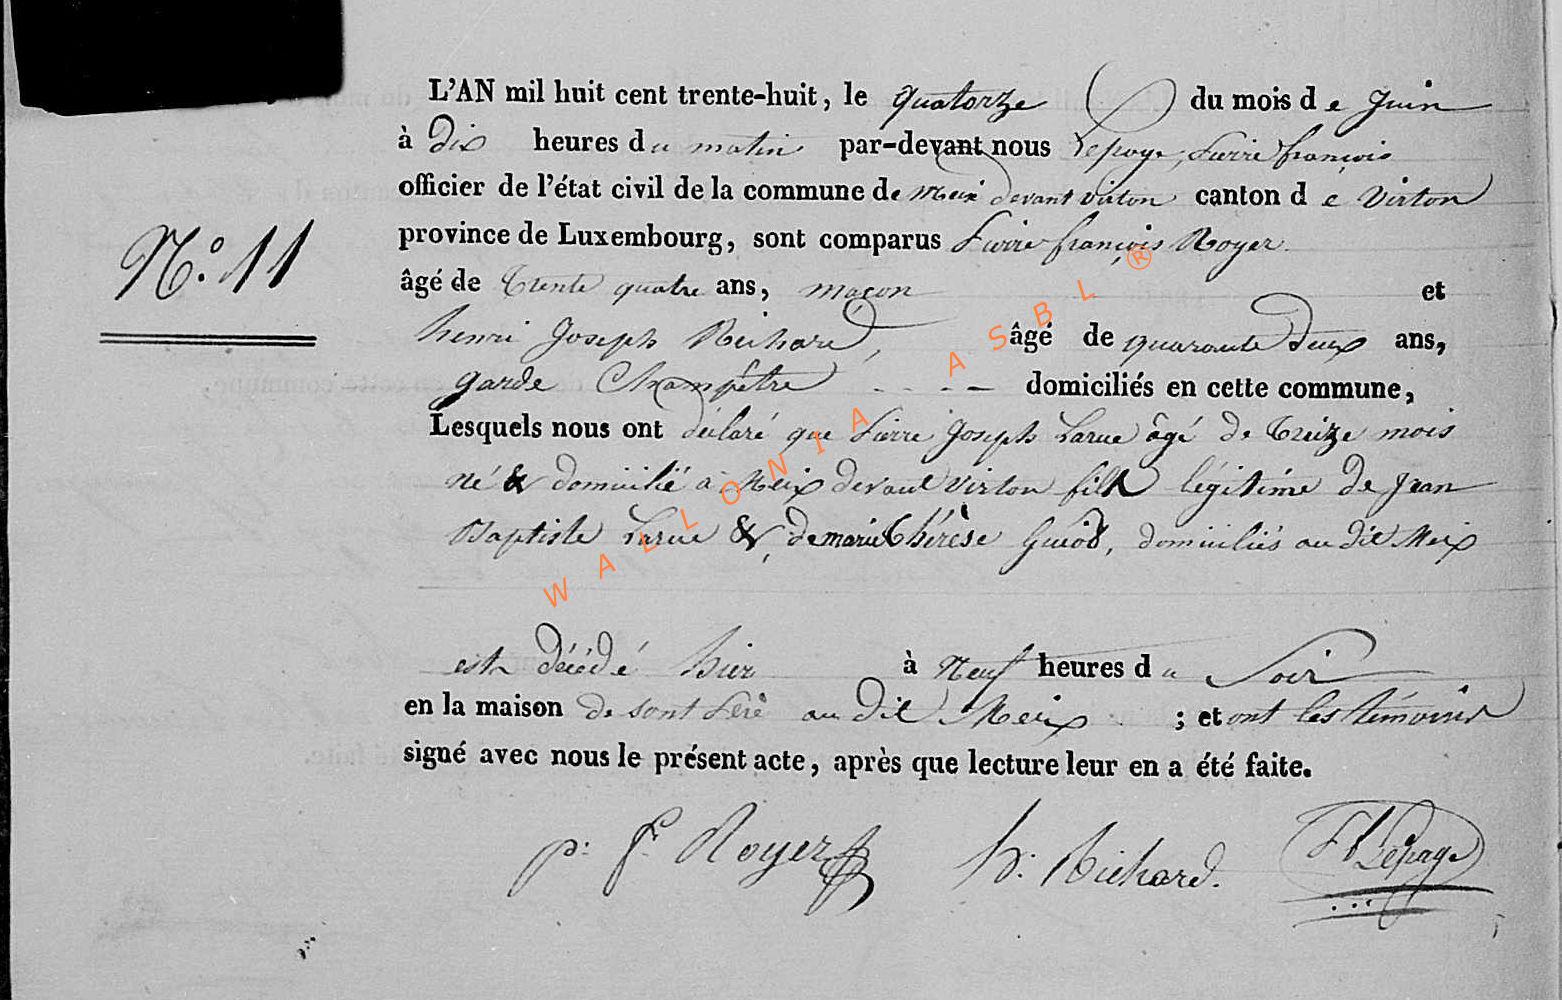 L'AN mil huit cent trente-huit, le quatorze du mois de Juin
à Dix heures du matin par-devant nous Lepage, Pierre françois
officier de l'état civil de la commune de Meix devant virton canton de Virton
province de Luxembourg, sont comparus Pierre françois Royer
N.° 11
âgé de Trente quatre ans, maçon et
henri Joseph Richard, âgé de quarante Deux ans,
garde Champêtre - - - - domiciliés en cette commune,
Lesquels nous ont déclaré que Pierre Joseph Larue âgé de Treize mois
né & domicilié à Meix devant Virton fils légitime de Jean
Baptiste Larue &, de marie Thérèse Guiot, domiciliés au dit Meix
est décédé hier à Neuf heures du Soir
en la maison de sont Père au dit Meix ; et ont les témoins
signé avec nous le présent acte, après que lecture leur en a été faite.
p: f. Royer h: Richard. Lepage
WALLONIA ASBL ®